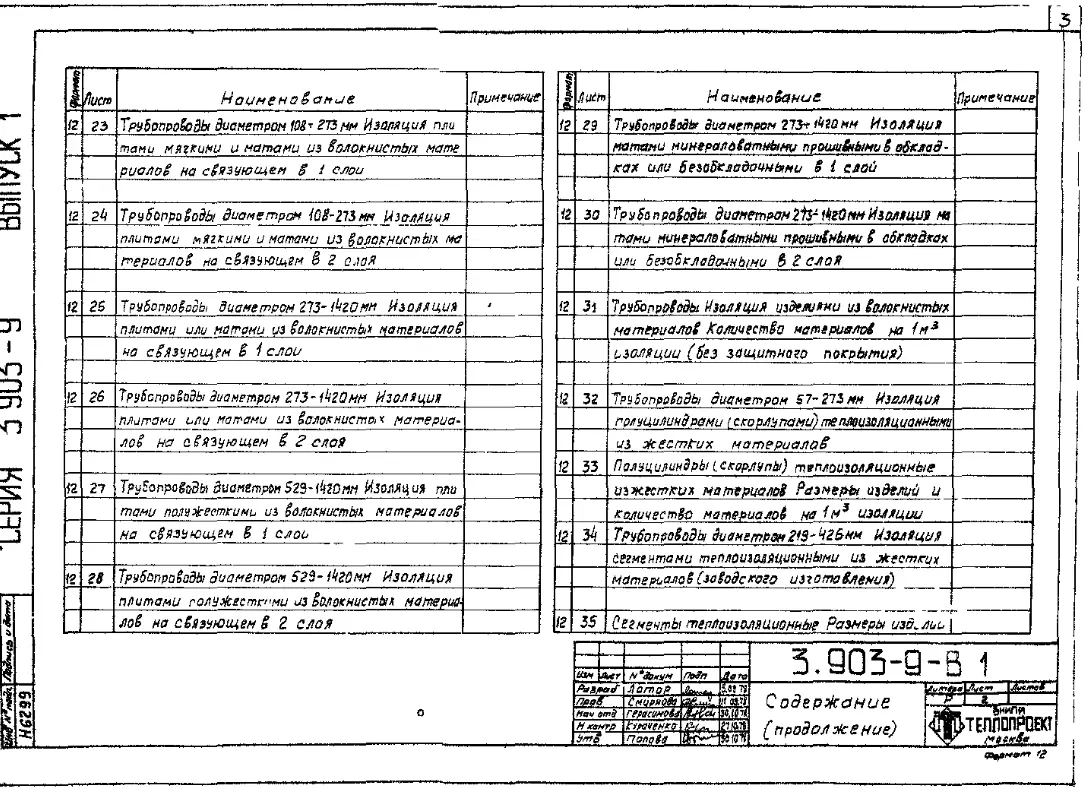 3
СЕРИЯ 3 903-9 ВЫПУСК 1
Формат Лист Наименование Примечание
12 23 Трубопроводы диаметром 108÷273 мм Изоляция пли
тами мягкими и матами из волокнистых мате
риалов на связующем в 1 слои
12 24 Трубопроводы диаметром 108-273 мм Изоляция
плитами мягкими и матами из волокнистых ма
териалов на связующем в 2 слоя
12 25 Трубопроводы диаметром 273-1420 мм Изоляция
плитами или матами из волокнистых материалов
на связующем в 1 слои
12 26 Трубопроводы диаметром 273-1420 мм Изоляция
плитами или матами из волокнистых материа-
лов на связующем в 2 слоя
12 27 Трубопроводы диаметром 529-1420 мм Изоляция пли
тами полужесткими из волокнистых материалов
на связующем в 1 слои
12 28 Трубопроводы диаметром 529-1420 мм Изоляция
плитами полужесткими из волокнистых материа-
лов на связующем в 2 слоя
Формат Лист Наименование Примечание
12 29 Трубопроводы диаметром 273÷1420 мм Изоляция
матами минераловатными прошивными в обклад-
ках или безобкладочными в 1 слой
12 30 Трубопроводы диаметром 273-1420 мм Изоляция ма
тами минераловатными прошивными в обкладках
или безобкладочными в 2 слоя
12 31 Трубопроводы Изоляция изделиями из волокнистых
материалов Количество материалов на 1 м³
изоляции (без защитного покрытия)
12 32 Трубопроводы диаметром 57-273 мм Изоляция
полуцилиндрами (скорлупами) теплоизоляционными
из жестких материалов
12 33 Полуцилиндры (скорлупы) теплоизоляционные
из жестких материалов Размеры изделий и
количество материалов на 1 м³ изоляции
12 34 Трубопроводы диаметром 219-426 мм Изоляция
сегментами теплоизоляционными из жестких
материалов (заводского изготовления)
12 35 Сегменты теплоизоляционные Размеры изделии
3.903-9-В 1
Изм Лист N°докум Подп Дата
Разраб Лотор
Пров Смирнова
Нач отд Герасимова
Н контр Кураченко
Утв Попова
Содержание
(продолжение)
Литера Лист Листов
Р 2
ВНИПИ
ТЕПЛОПРОЕКТ
Москва
Формат 12
Инв N°подл. Подпись и дата
Н6299